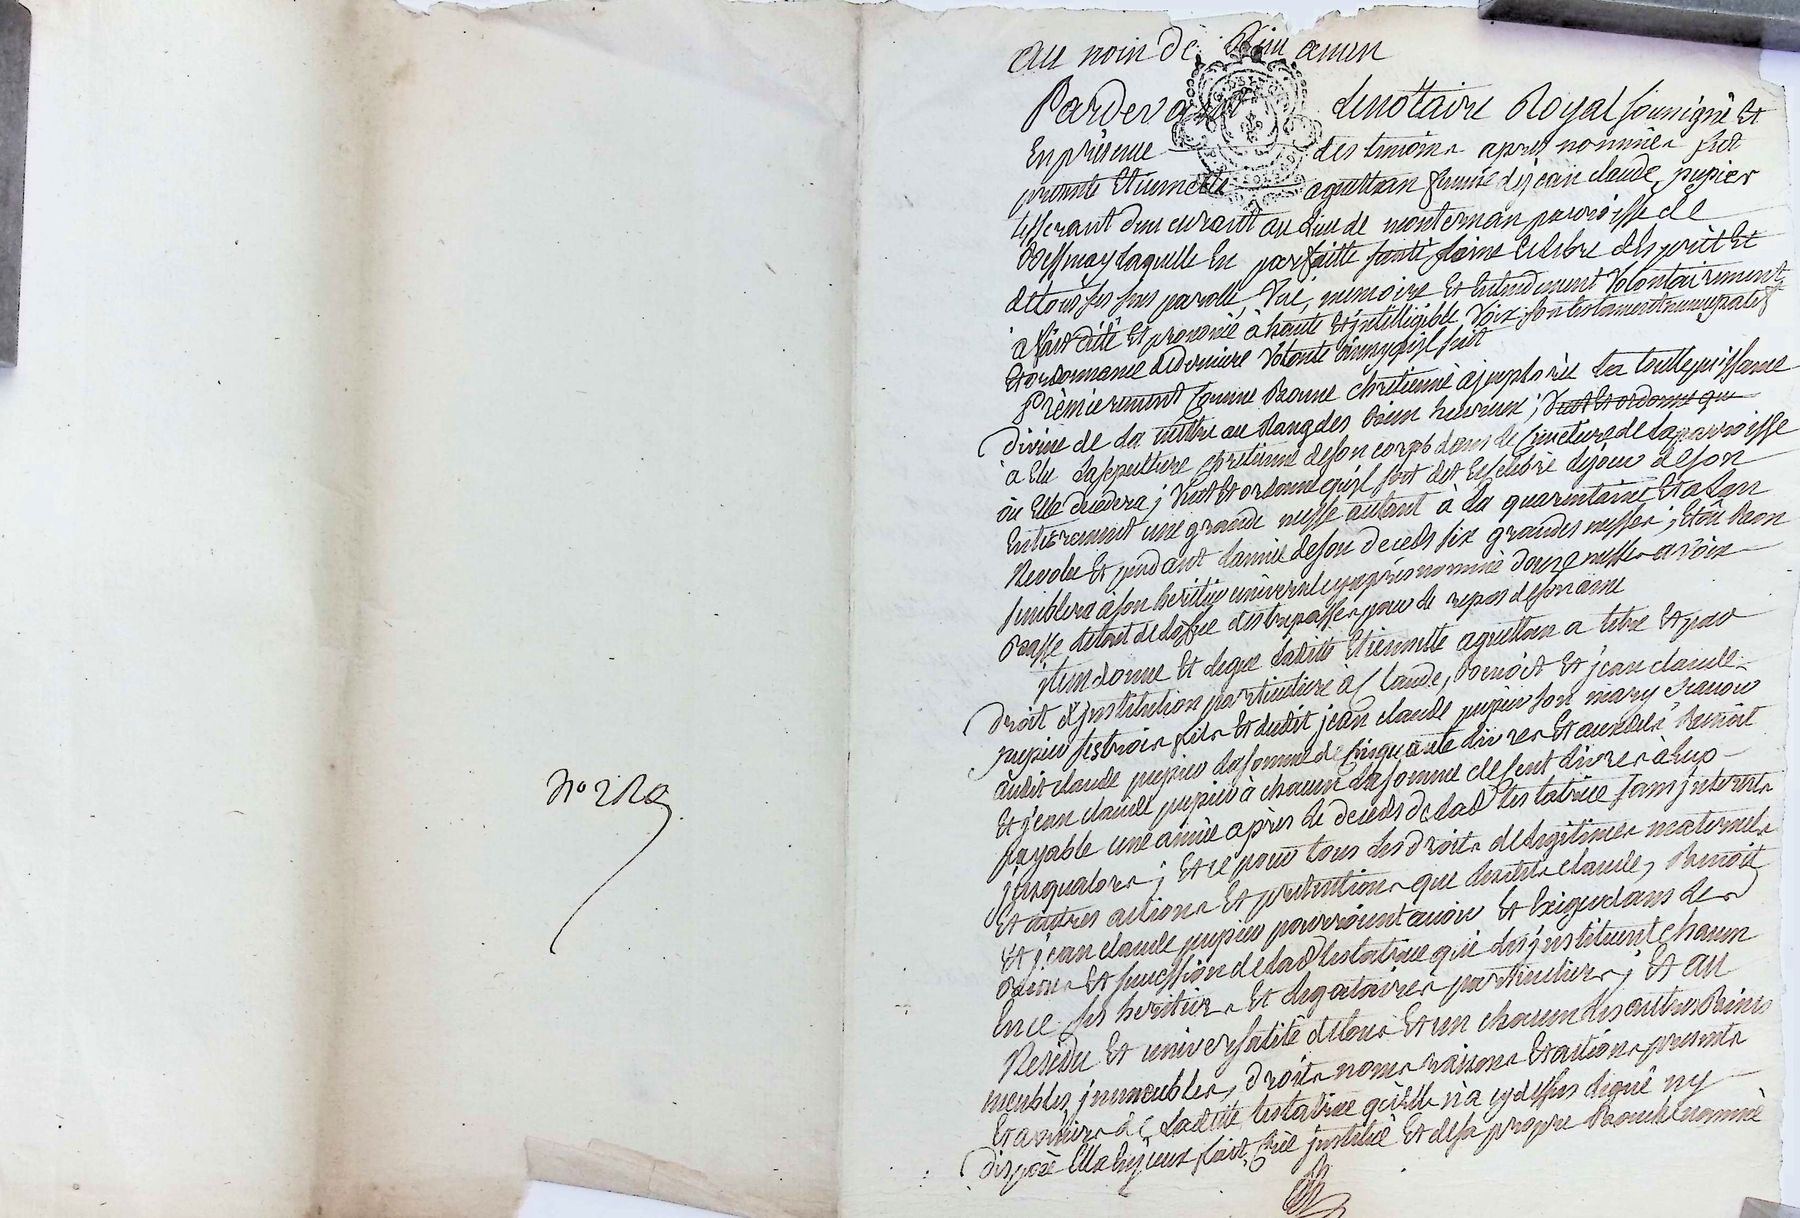 au nom de Dieu amen
Pardevant le nottaire Royal soussigné Et
En présence des temoins apres nommées fut
presente Etiennette aguettan femme de jean claude pupier
tisserant demeurant au lieu de monternan parroisse de
laquelle En parfaitte santé saine Et libre desprit Et
de tous ses sens parolle, Vüe, memoire Et Entendement Volontairement
a fait dicté Et prononcé à haute Et jntelligible Voix son testament nuncupatif
Et ordonnance de derniere Volonté ainsy qu'il suit
Prèmierement Comme Bonne chretienne a jmplorée la toutte puissance
divine de la mettre au Rang des bien heureux; Veut Et ordonne que
a Elu la sepulture chretienne de son corps dans le Cimetiere de la parroisse
où Elle decedera; Veut Et ordonne qu'il soit dit Et celebré le jour de son
Enterrement une grande messe autant à la quarantaine Et a lan
Revolu Et pendant lannée de son deceds six grandes messes; Et où Bon
semblera à son heritier universel cy après nommé douze messes a voix
Basse le tout de loffice des trepassés pour le repos de son ame
jtem donne Et legue ladite Etiennette aguettan a titre Et par
droit d'jnstitution particuliere à Claude, Benoit Et jean claude
pupier ses trois fils Et dudit jean claude pupier son mary scavoir
audit claude pupier la somme de Cinquante livres Et auxdits Benoit
Et jean claude pupier à chacun la somme de Cent livres à eux
payable une année apres le deceds de lad testatrice sans jnterets
jusqualors; Et ce pour tous les droits de legitimes maternels
Et autres actions Et pretentions que lesdits claude, Benoit
Et jean claude pupier pourroient avoir Et Exiger dans les
Biens Et succession de lad testatrice qui les jnstituent chacun
En ce ses heritiers Et legataires particuliers; Et au
Residu Et universalité de tous Et un chacun les autres Biens
meubles jmmeubles, droits noms raisons Et actions presents
Et avenirs de ladite testatrice qu'elle n'a cy dessus legué ny
disposé Elle a fait, Crée jnstitué Et de sa propre Bouche nommé
No 210